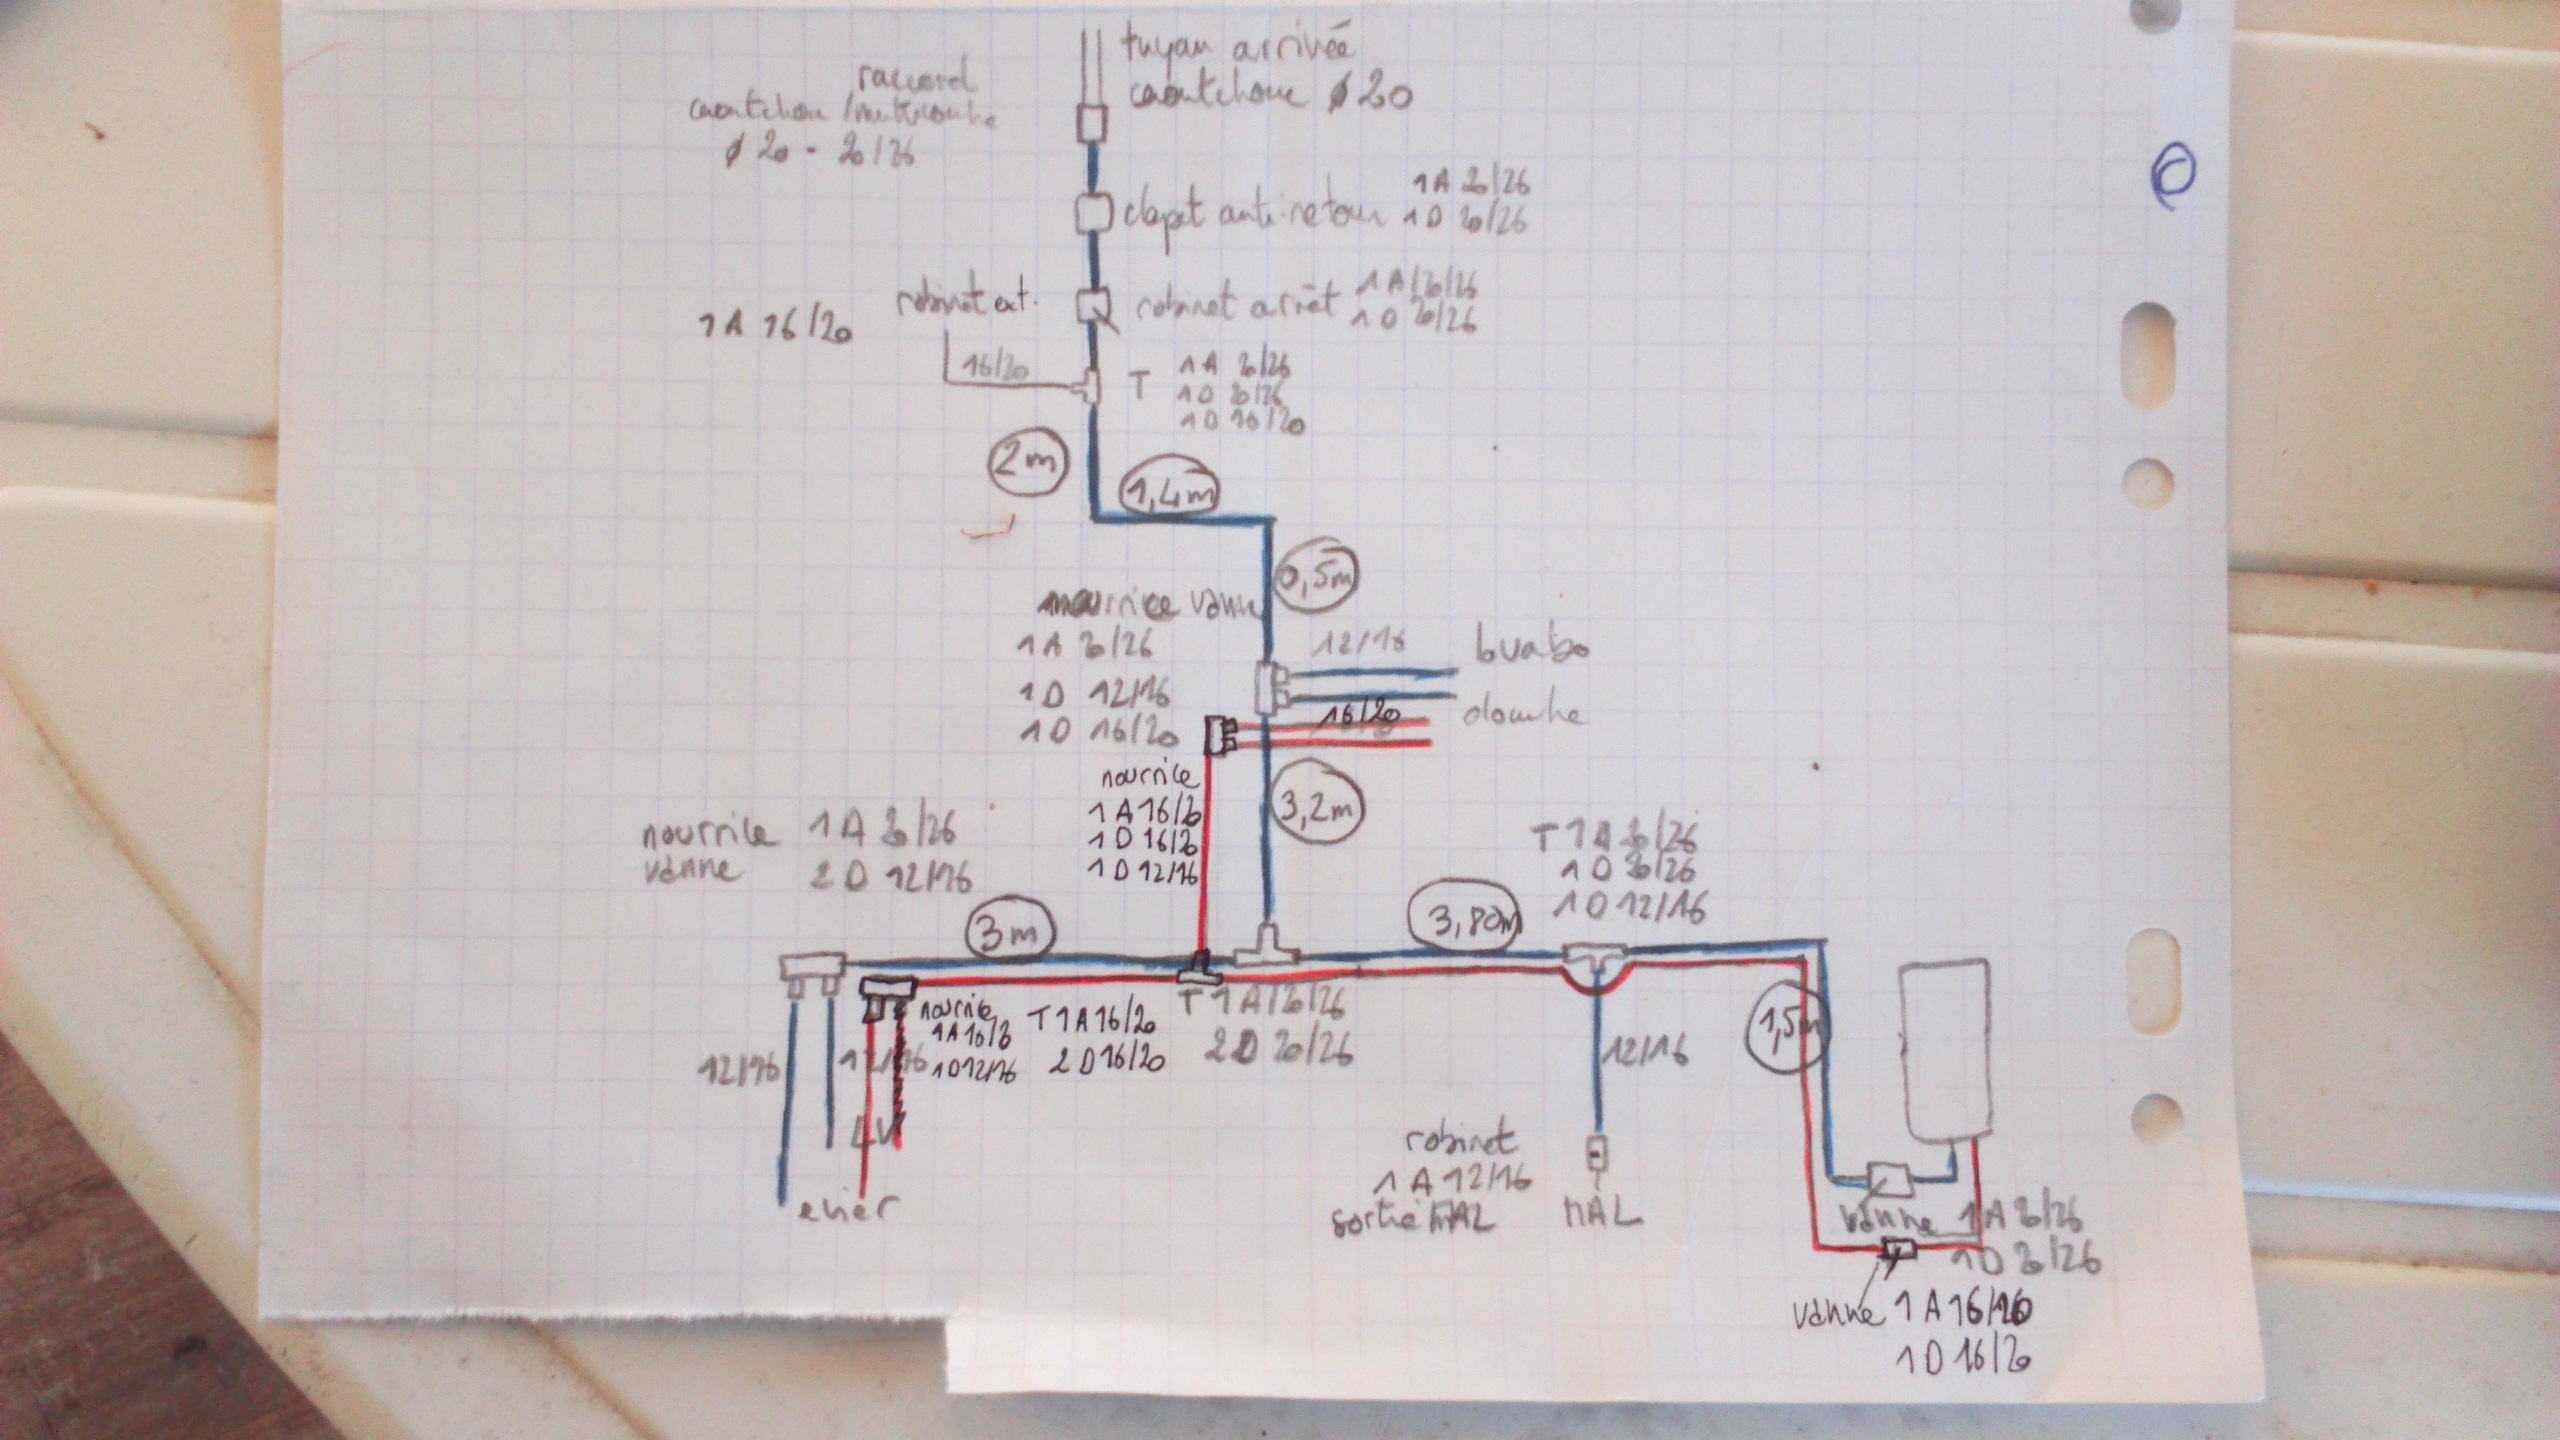 tuyau arrivée
caoutchouc ø 20
raccord
caoutchou /multicouche
ø 20 - 20/26
clapet anti-retour 1A 20/26
1D 20/26
robinet ext.
1A 16/20
robinet arrêt 1A/20/26
1D 20/26
16/20
T 1A 20/26
1D 20/26
1D 16/20
2m
1,4m
0,5m
nourrice vanne
1A 20/26
1D 12/16
1D 16/20
12/16
buabo
16/20
douche
nourrice
1A 16/20
1D 16/20
1D 12/16
3,2m
nourrice 1A 20/26
vanne 2D 12/16
T 1A 20/26
1D 20/26
1D 12/16
3m
3,80m
nourrice
1A 16/20
1D 12/16
T 1A 16/20
2D 16/20
T 1A/20/26
2D 20/26
12/16
12/16
LV
evier
12/16
1,5m
robinet
1A 12/16
sortie MAL
MAL
vanne 1A 20/26
1D 20/26
vanne 1A 16/20
1D 16/20